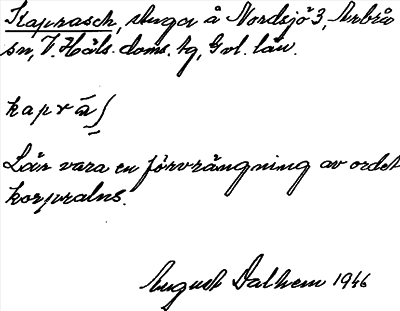 Kaprasch, stuga å Nordsjö 3, Arbrå
sn, V. Häls. doms. tg, Gvl. län.
kaprāʃ
Lär vara en förvrängning av ordet
korprals.
August Dalhem 1946